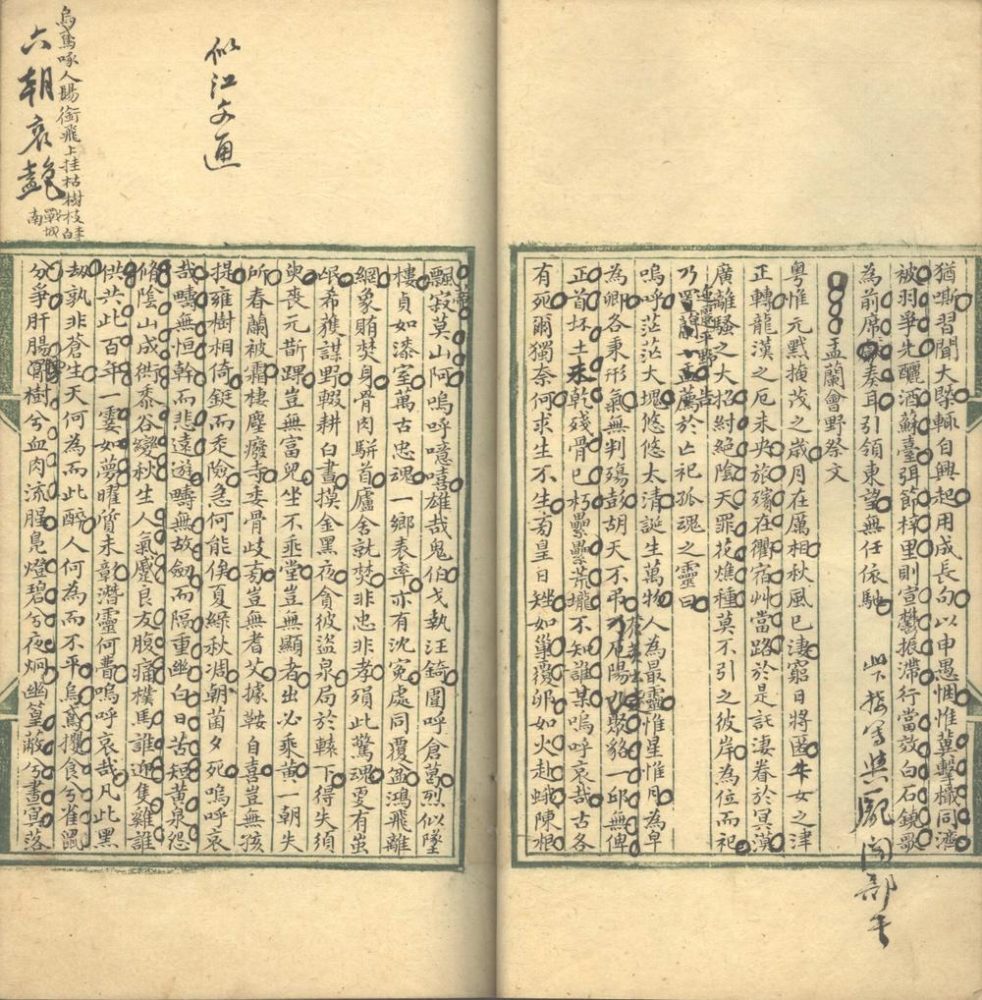 猶嘶習聞大槩輒自興起用成長句以申愚悃惟冀擊檝同濟
被羽爭先釃酒蘇臺弭節梓里則宣鬱振滯行當效白石鐃歌
為前席奏耳引領東望無任依馳
盂蘭會野祭文
粵惟元黓掩茂之歲月在厲相秋風已淒窮日將匿牛女之津
正轉龍漢之厄未央旅殯在衢宿艸當路於是託淒眷於冥漠
廣離騷之大招紂絕陰天罪花燋種莫不引之彼岸為位而祀
乃蘭盂薦於亡祀孤魂之靈曰
嗚呼茫茫大塊悠悠太清誕生萬物人為最靈惟星惟月為皁
為卿各秉形氣無判殤彭胡天不弔厄陽九聚貉一邱無俾
正首抔土未乾殘骨已朽纍纍荒壠不知誰某嗚呼哀哉古各
有死爾獨奈何求生不生芻皇日矬如巢覆卵如火赴蛾陳根
飄寂莫山阿嗚呼噫嘻雄哉鬼伯戈執汪錡圍呼倉葛烈似墜
樓貞如漆室萬古忠魂一鄉表率亦有沈冤處同覆盆鴻飛離
網象賄焚身骨肉駢首廬舍就焚非忠非孝殞此驚魂更有蚩
氓希獲謀野輟耕白晝摸金黑夜貪彼盜泉局於轅下得失須
臾喪元斮踝豈無富兒坐不垂堂豈無顯者出必乘黃一朝失
所春蘭被霜棲塵廢寺委骨歧旁豈無耆艾據鞍自喜豈無孩
提雍樹相倚鋌而走險急何能俟夏綠秋凋朝菌夕死嗚呼哀
哉疇無恒幹而悲遠遊疇無故劍而隔重幽白日苦短黃泉怨
脩陰山成供黍谷變秋生人氣蹙良友腹痛樸馬誰迎隻雞誰
供共此百年一霎如夢曜質未彰潛靈何賷嗚呼哀哉凡此黑
劫孰非蒼生天何為而此醉人何為而不平烏鳶攫食兮雀鼠
分爭肝腸罥樹兮血肉流腥鬼燈碧兮夜炯幽篁蔽兮晝宣落
似江文通
烏鳶啄人腸銜飛上挂枯樹枝李白
戰城南
六朝哀艷